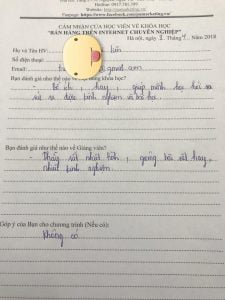 Hotline: 0917.585.389
Website: http://pamarketing.vn/
Fanpage: https://www.facebook.com/pamarketing.vn/
CẢM NHẬN CỦA HỌC VIÊN VỀ KHÓA HỌC
"BÁN HÀNG TRÊN INTERNET CHUYÊN NGHIỆP"
Hà nội, ngày 8 Tháng 4 Năm 2018
Họ và Tên HV: Kiên
Số điện thoại:
Email: @gmail.com
Bạn đánh giá như thế nào về nội dung khóa học?
- Bổ ích, hay, giúp mình học hỏi ra
rất nhiều kinh nghiệm và bài học.
Bạn đánh giá như thế nào về Giảng viên?
- Thầy rất nhiệt tình, giảng bài rất hay,
nhiều kinh nghiệm.
Góp ý của Bạn cho chương trình (Nếu có):
Không có